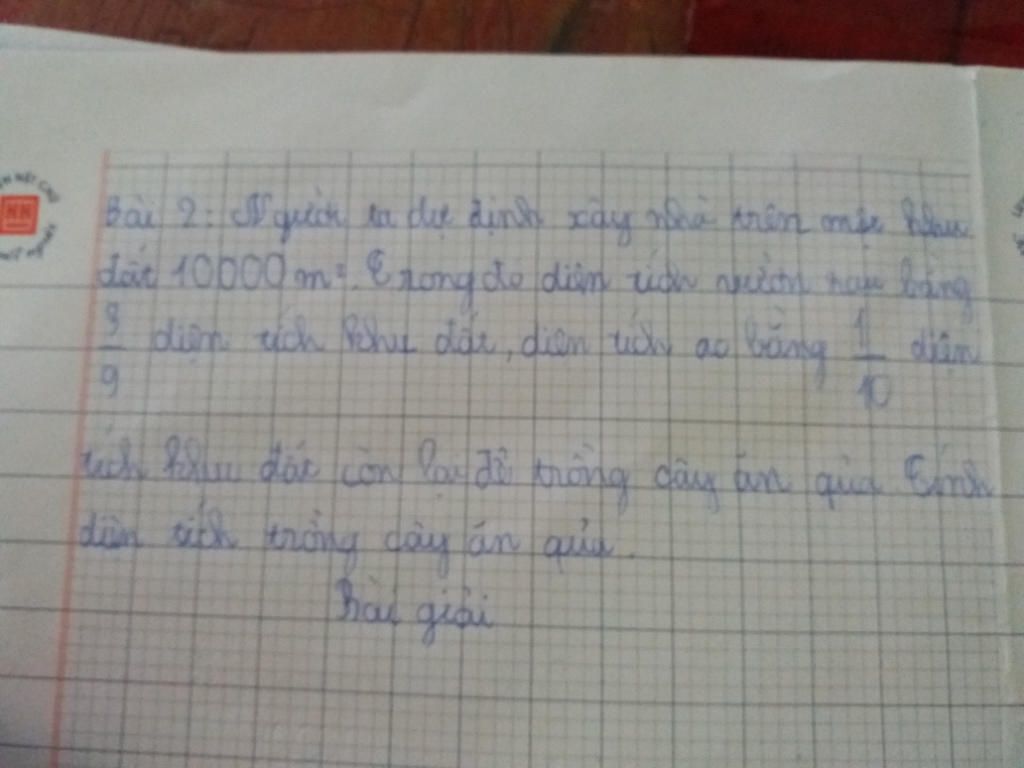 Bài 2: Người ta dự định xây nhà trên một khu
đất 10000 m². Trong đó diện tích vườn rau bằng
diện tích khu đất, diện tích ao bằng 1/10 diện
tích khu đất còn lại để trồng cây ăn quả Tính
diện tích trồng cây ăn quả.
Bài giải